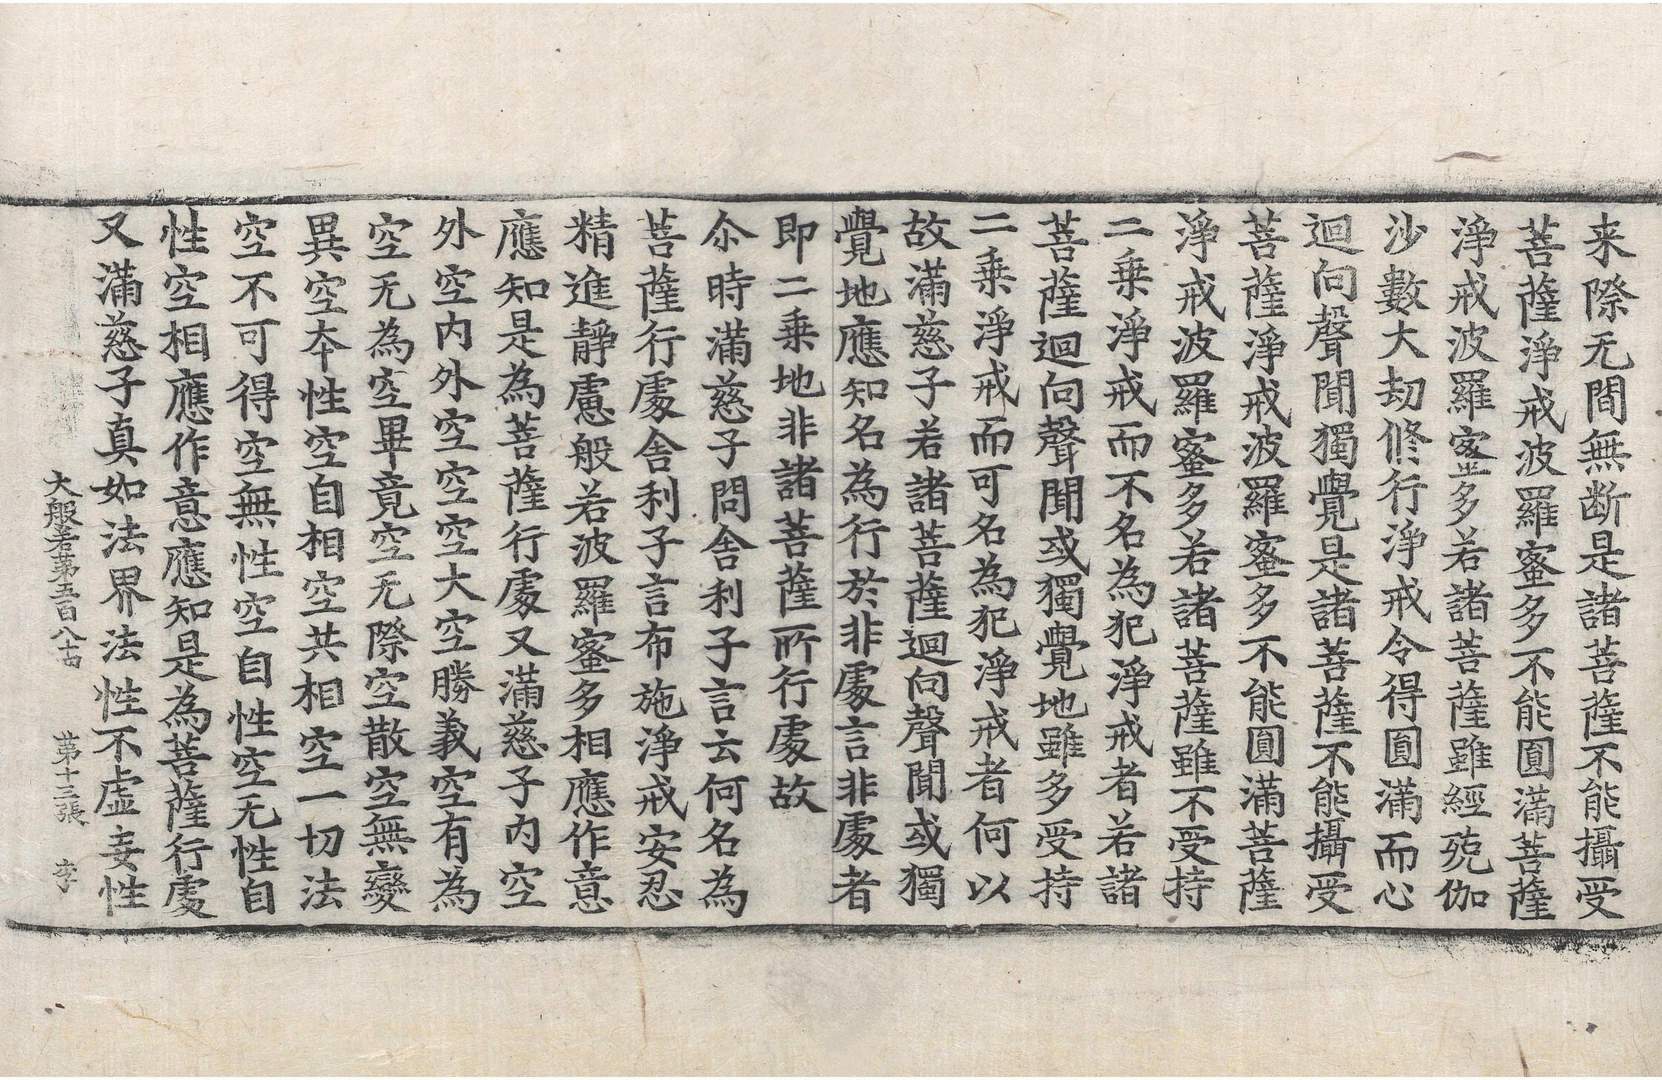 来際无間無断是諸菩薩不能攝受
菩薩淨戒波羅蜜多不能圓滿菩薩
淨戒波羅蜜多若諸菩薩雖經殑伽
沙數大劫修行淨戒令得圓滿而心
迴向聲聞獨覺是諸菩薩不能攝受
菩薩淨戒波羅蜜多不能圓滿菩薩
淨戒波羅蜜多若諸菩薩雖不受持
二乗淨戒而不名為犯淨戒者若諸
菩薩迴向聲聞或獨覺地雖多受持
二乗淨戒而可名為犯淨戒者何以
故滿慈子若諸菩薩迴向聲聞或獨
覺地應知名為行於非處言非處者
即二乗地非諸菩薩所行處故
尒時滿慈子問舎利子言云何名為
菩薩行處舎利子言布施淨戒安忍
精進靜慮般若波羅蜜多相應作意
應知是為菩薩行處又滿慈子内空
外空内外空空空大空勝義空有為
空无為空畢竟空无際空散空無變
異空夲性空自相空共相空一切法
空不可得空無性空自性空无性自
性空相應作意應知是為菩薩行處
又滿慈子真如法界法性不虚妄性
大般若第五百八十四 第十三張 李